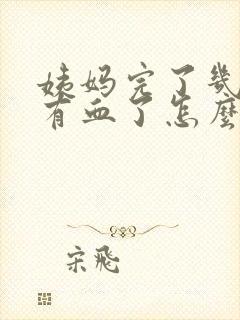 姨妈完了几
有血了怎麼
宋飛